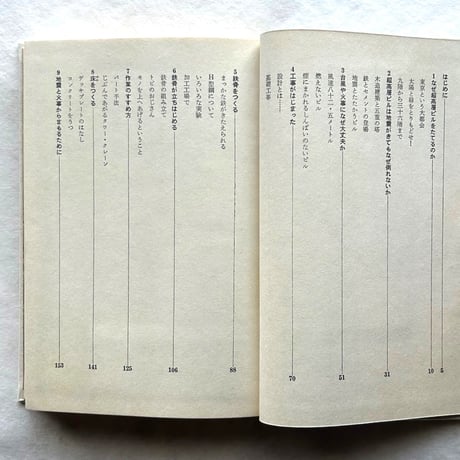 はじめに 5
1 なぜ超高層ビルをたてるのか 10
東京という大都会
太陽と緑をとりもどせ!
九階から三十六階まで
2 超高層ビルは地震がきてもなぜ倒れないか 31
木造建築と五重の塔
鉄とセメントの登場
地震とたたかうビル
3 台風や火事になぜ大丈夫か 51
風速八十二・五メートル
燃えないビル
煙にまかれるしんぱいのないビル
4 工事がはじまった 70
設計とは……
基礎工事
5 鉄骨をつくる 88
まっかな鉄がきたえられる
H型鋼について
いろいろな実験
加工工場で
6 鉄骨が立ちはじめる 106
鉄骨の組み立て
トビのおじさん
モノを上へあげるということ
7 作業のすすめ方 125
パート手法
じぶんであがるタワー・クレーン
8 床をつくる 141
デッキプレートのはなし
コンクリートをうつ
9 地震と火事からまもるために 153